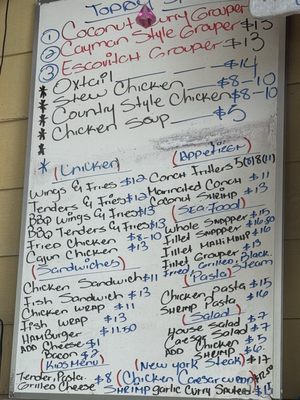 ① Coconut Curry Grouper $13
② Cayman Style Grouper $13
③ Escovitch Grouper $13
* Oxtail $14
* Stew Chicken $8-10
* Country Style Chicken $8-10
* Chicken Soup $5
* (Chicken)
Wings & Fries $12
Tenders & Fries $12
BBQ Wings & Fries $13
BBQ Tenders & Fries $13
Fried Chicken $8-10
Cajun Chicken $13
(Appetizer)
Conch Fritters 5(8)8(11)
Marinated Conch $11
Coconut Shrimp $13
(Sea-food)
Whole Snapper $15
Fillet Snapper $16
Fillet Mahi Mahi $16
Fillet Grouper $13
Fried, Grilled, Black.
Steam
(Sandwiches)
Chicken Sandwich $11
Fish Sandwich $13
Chicken Wrap $11
Fish Wrap $13
Hamburger $11.50
Add Cheese $1
Bacon $2
(Pasta)
Chicken Pasta $15
Shrimp Pasta $16
(Salad)
House Salad $7
Caesar Salad $7
Add Chicken $5
Shrimp $6
(Kids Menu)
Tender, Pasta, $8
Grilled Cheese
(New York Steak) $17
(Chicken Caesar
Shrimp garlic Curry Sautees $15